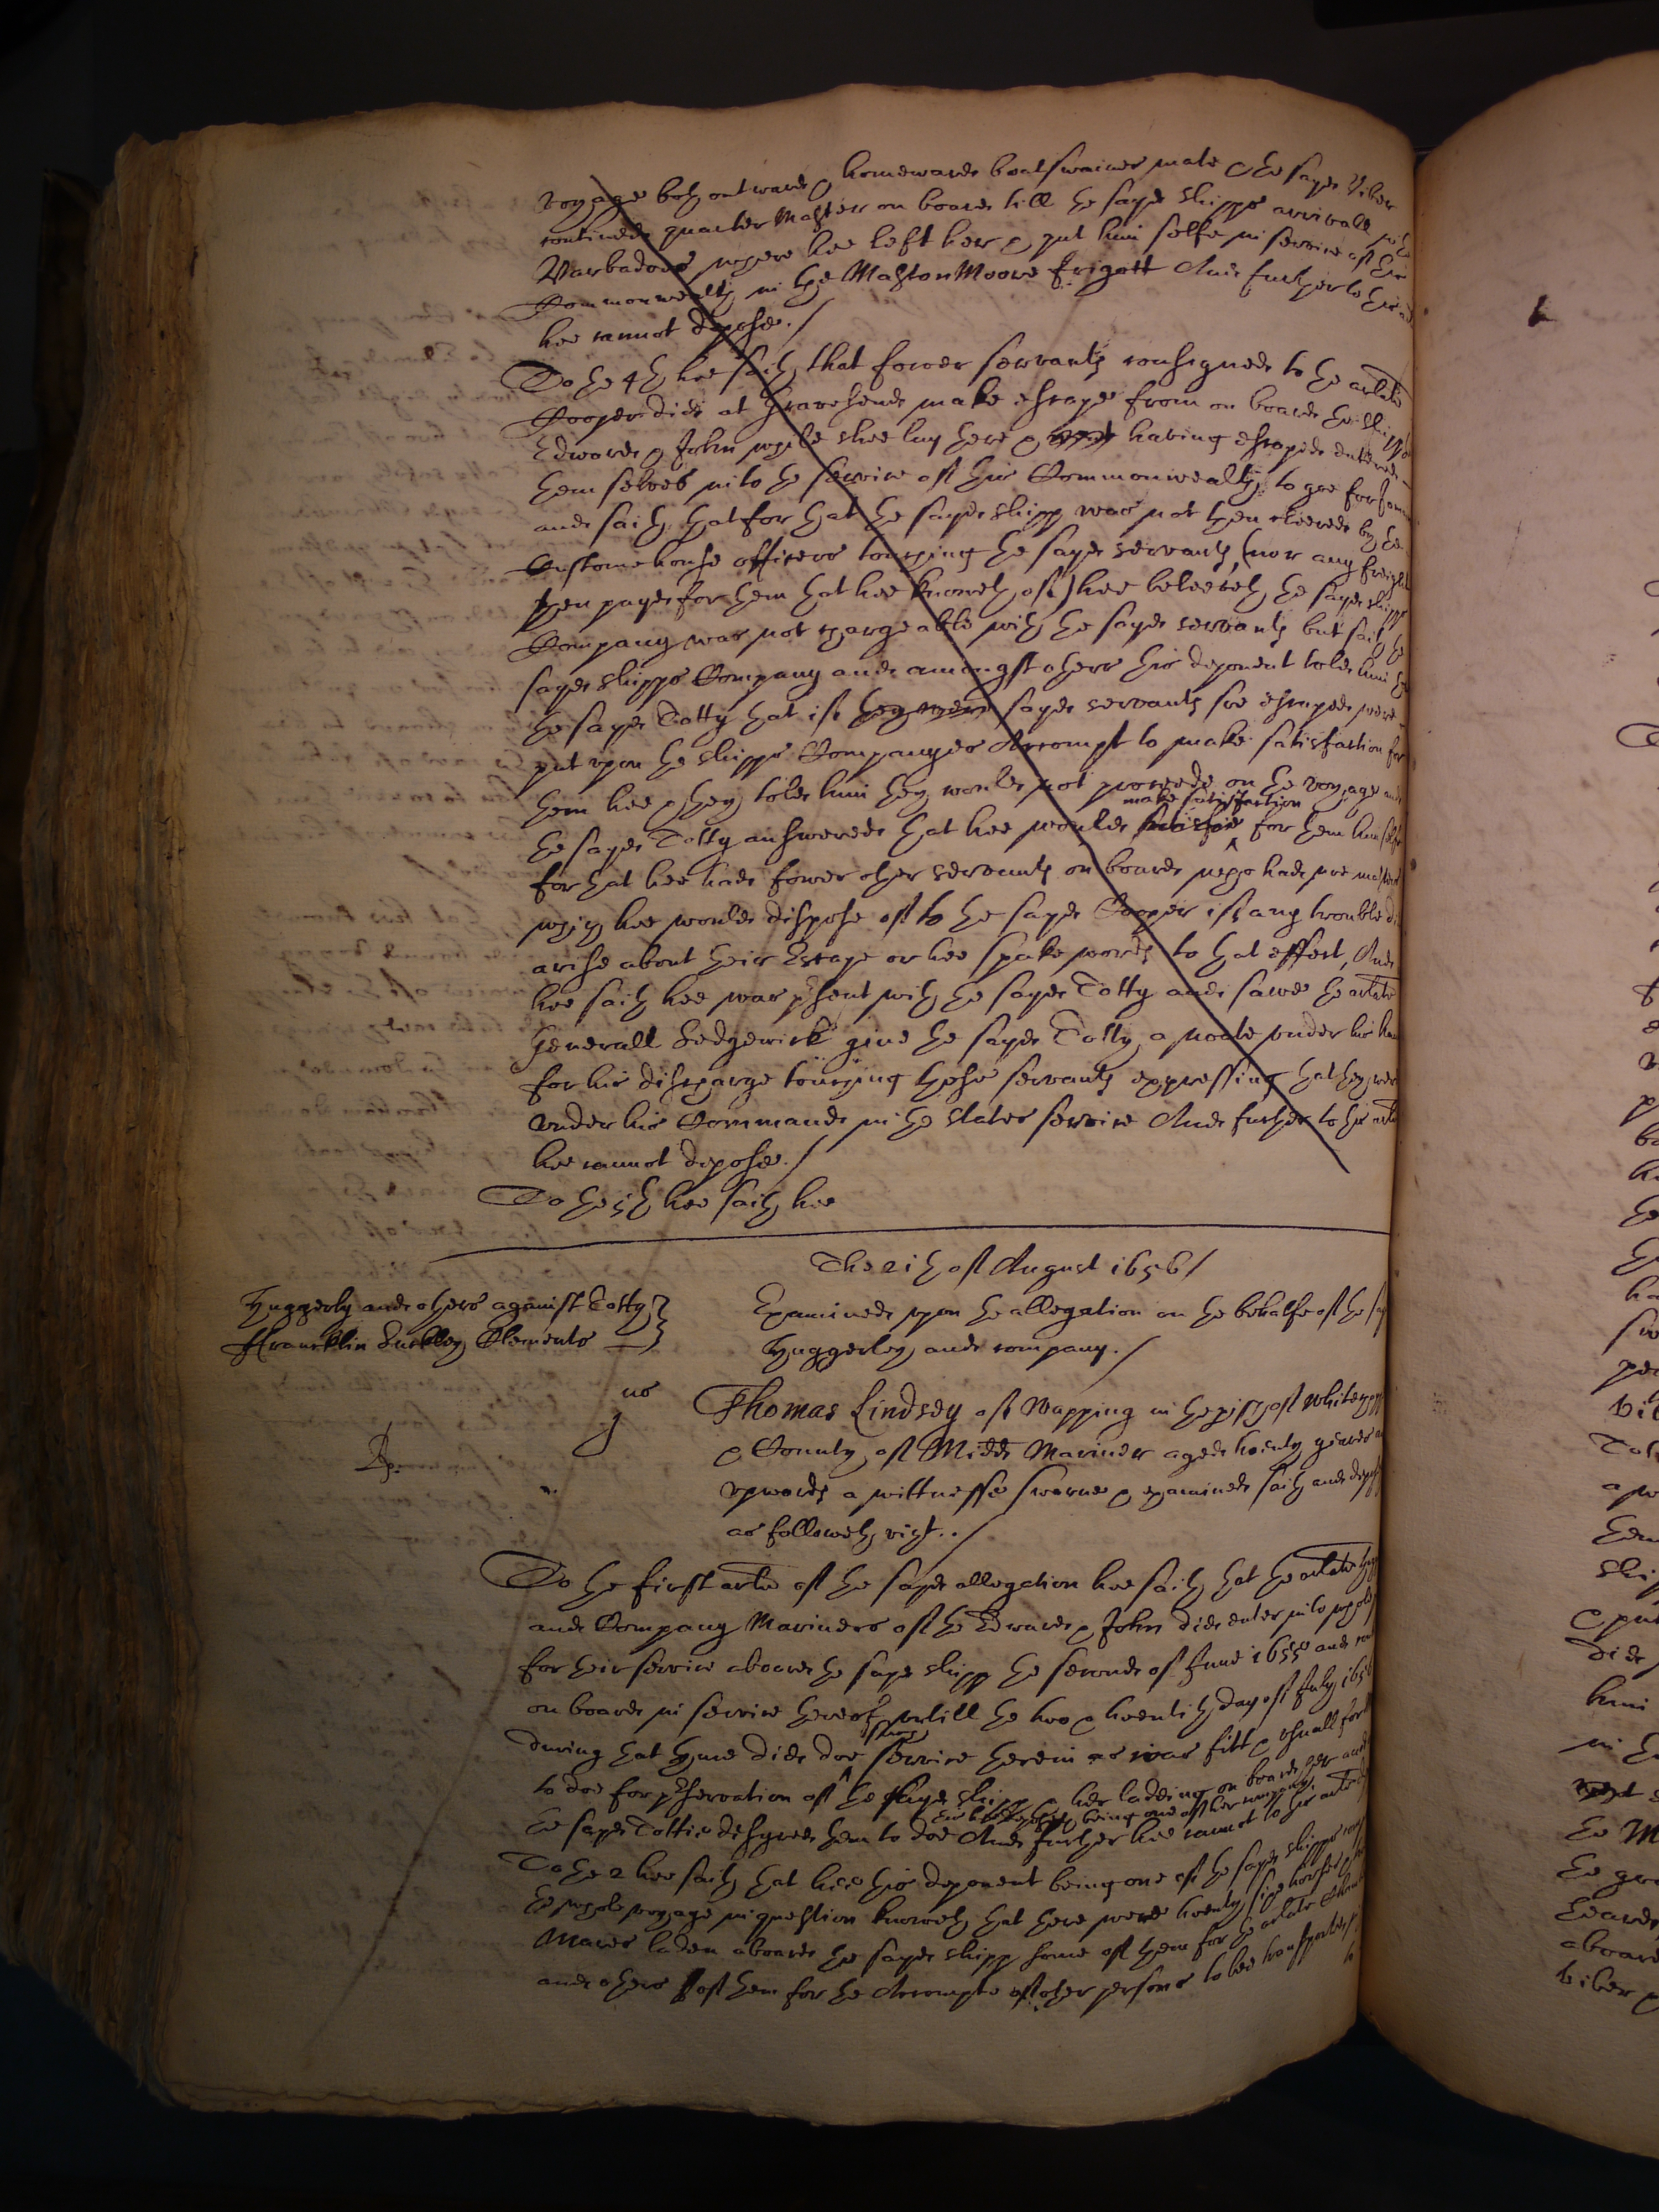 voyage both outward & homewards boatswaines mate & the sayd Viber
continued quarter Master on board till the sayd shipps arrivall at the
Barbadoes where hee left her & put him selfe in service of this
Commonwealth in the Maston Moore frigott And further to this
hee cannot depose./
To the 4th hee saith that fower servants consigned to the arlate
Cooper did at Gravesend make escape from on board the shipp
Edward & John while shee lay there & having escaped entered
themselves into the service of this Commonwealth to goe for
and saith that for that the sayd shipp was not then cleered by the
Custome house officers touching the sayd servants (nor any freight
then payd for them that hee knoweth of) hee beleeveth the sayd shipps
Company was not chargeable with the sayd servants but saith the
sayd shipps Company and amongst others this deponent told him
the sayd Totty that if they were sayd servants soe escaped were
put upon the shipps Companyes Accompt to make satisfaction for
them hee & they told him they would not proceede on the voyage and
the sayd Totty answered that hee would make satisfaction for them himselfe
for that hee had fower other servants on board who had noe master
which hee would dispose of to the sayd Cooper if any trouble did
arise about their Escape or hee spake words to that effect, And
hee saith hee was present with the sayd Totty and sawe the arlate
Generall Sedgewick give the sayd Totty a noate under his hand
for his discharge touching those servants expressing that they were
under his Command in the states service And further to this arle
hee cannot depose./
To the 5th hee saith hee
The 21th of August 1656/
Huggerly and others against Totty
Francklin Suckley Clements
Examined upon the allegation on the behalfe of the sayd
Huggerley and company./
Thomas Lindsey of Wapping in the pish of Whitechappell
& County of Midd Mariner aged twenty yeares and
upwards a wittnesse sworne & examined saith and deposeth
as followeth vizt../
To the first arle of the sayd allegation hee saith that the arlate
and Company Mariners of the Edward & John did enter into whole pay
for their service aboard the sayd shipp the second of June 1655 and
on board in service thereof untill the two & twentith day of July 1656
during that tyme did doe service therein as was fitt & usuall for
to doe for preservation of the sayd shipp & her ladeing on board her and
this deponent being one of her company.
the sayd Tottie desyred them to doe And further hee cannot to this arle
To the 2 hee saith that hee this deponent being one of the sayd shipps company
the whole voyage in question knoweth that there were twenty sixe horses
Mares laden aboard the sayd shipp some of them for the arlate
and others of them for the Accompte of other persons to bee transported